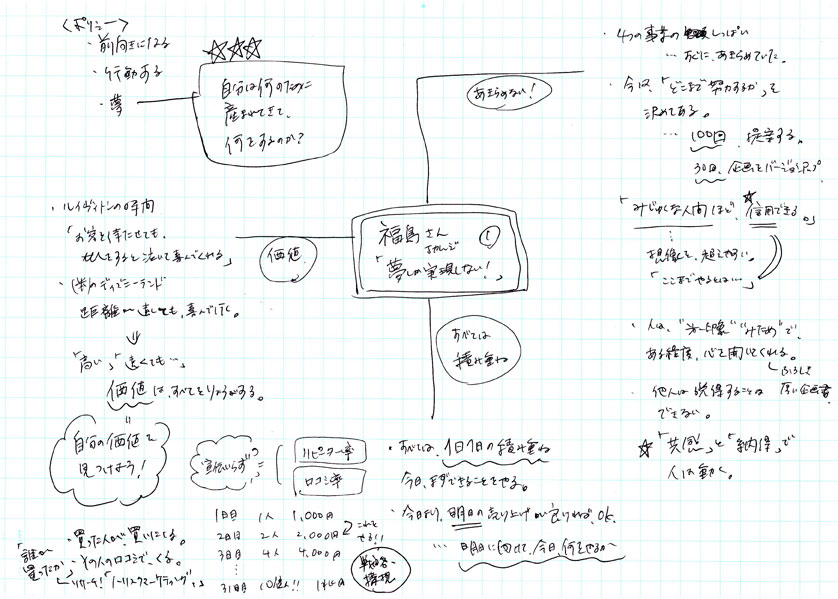 <ポリシー>
・前向きになる
・行動する
・夢
☆☆☆
自分は何のために
産まれてきて、
何をするのか?
あきらめない!
・4つの事業の しっぱい
… すぐに、あきらめていた。
・今は、「どこまで努力するか」を
決めてある。
… 100回 提案する。
30回、企画をバージョンアップ
「みじゅくな人間ほど、信用できる。」
想像を、超えやすい。
「ここまでやるとは…」
福島さん
①
「夢しか実現しない!」
価値
・ルイヴィトンの 時間
「お客を待たせても、
・(米)のディズニーランド
距離が遠くても、喜んで行く。
⇓
「高い」「遠くても…」
価値は、すべてをりょうがする。
自分の価値を
見つけよう!
すべては
積み重ね
・人は、 "みため"で、
ある程度、心を開いてくれる。
・他人は説得することは
厚い企画書
できない。
☆「共感」と「納得」で
人は動く。
"宣伝いらず" =
リピーター率
口コミ率
1日目 1人 1,000円
2日目 2人 2,000円
3日目 4人 4,000円
31日目 10億人!! 1兆円
これを
やる!!
・すべては、1日1日の積み重ね
今日、まずできることをやる。
・今日より、明日の売り上げが良ければ、OK.
… 明日に向けて、今日、何をするか
・買った人が、買いにくる。
・その人の口コミで、くる。
「誰が
買ったか」
リサーチ!「ノーリスクマーケティング」